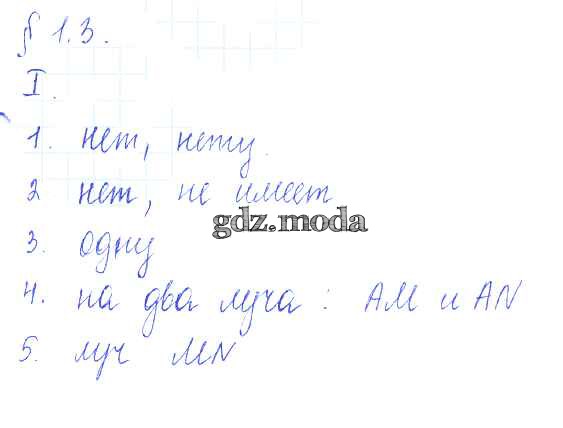 § 1.3.
I.
1. нет, нету.
2 нет, не имеет
gdz.moda
3. одну
4. на два луча : AM и AN
5. луч MN